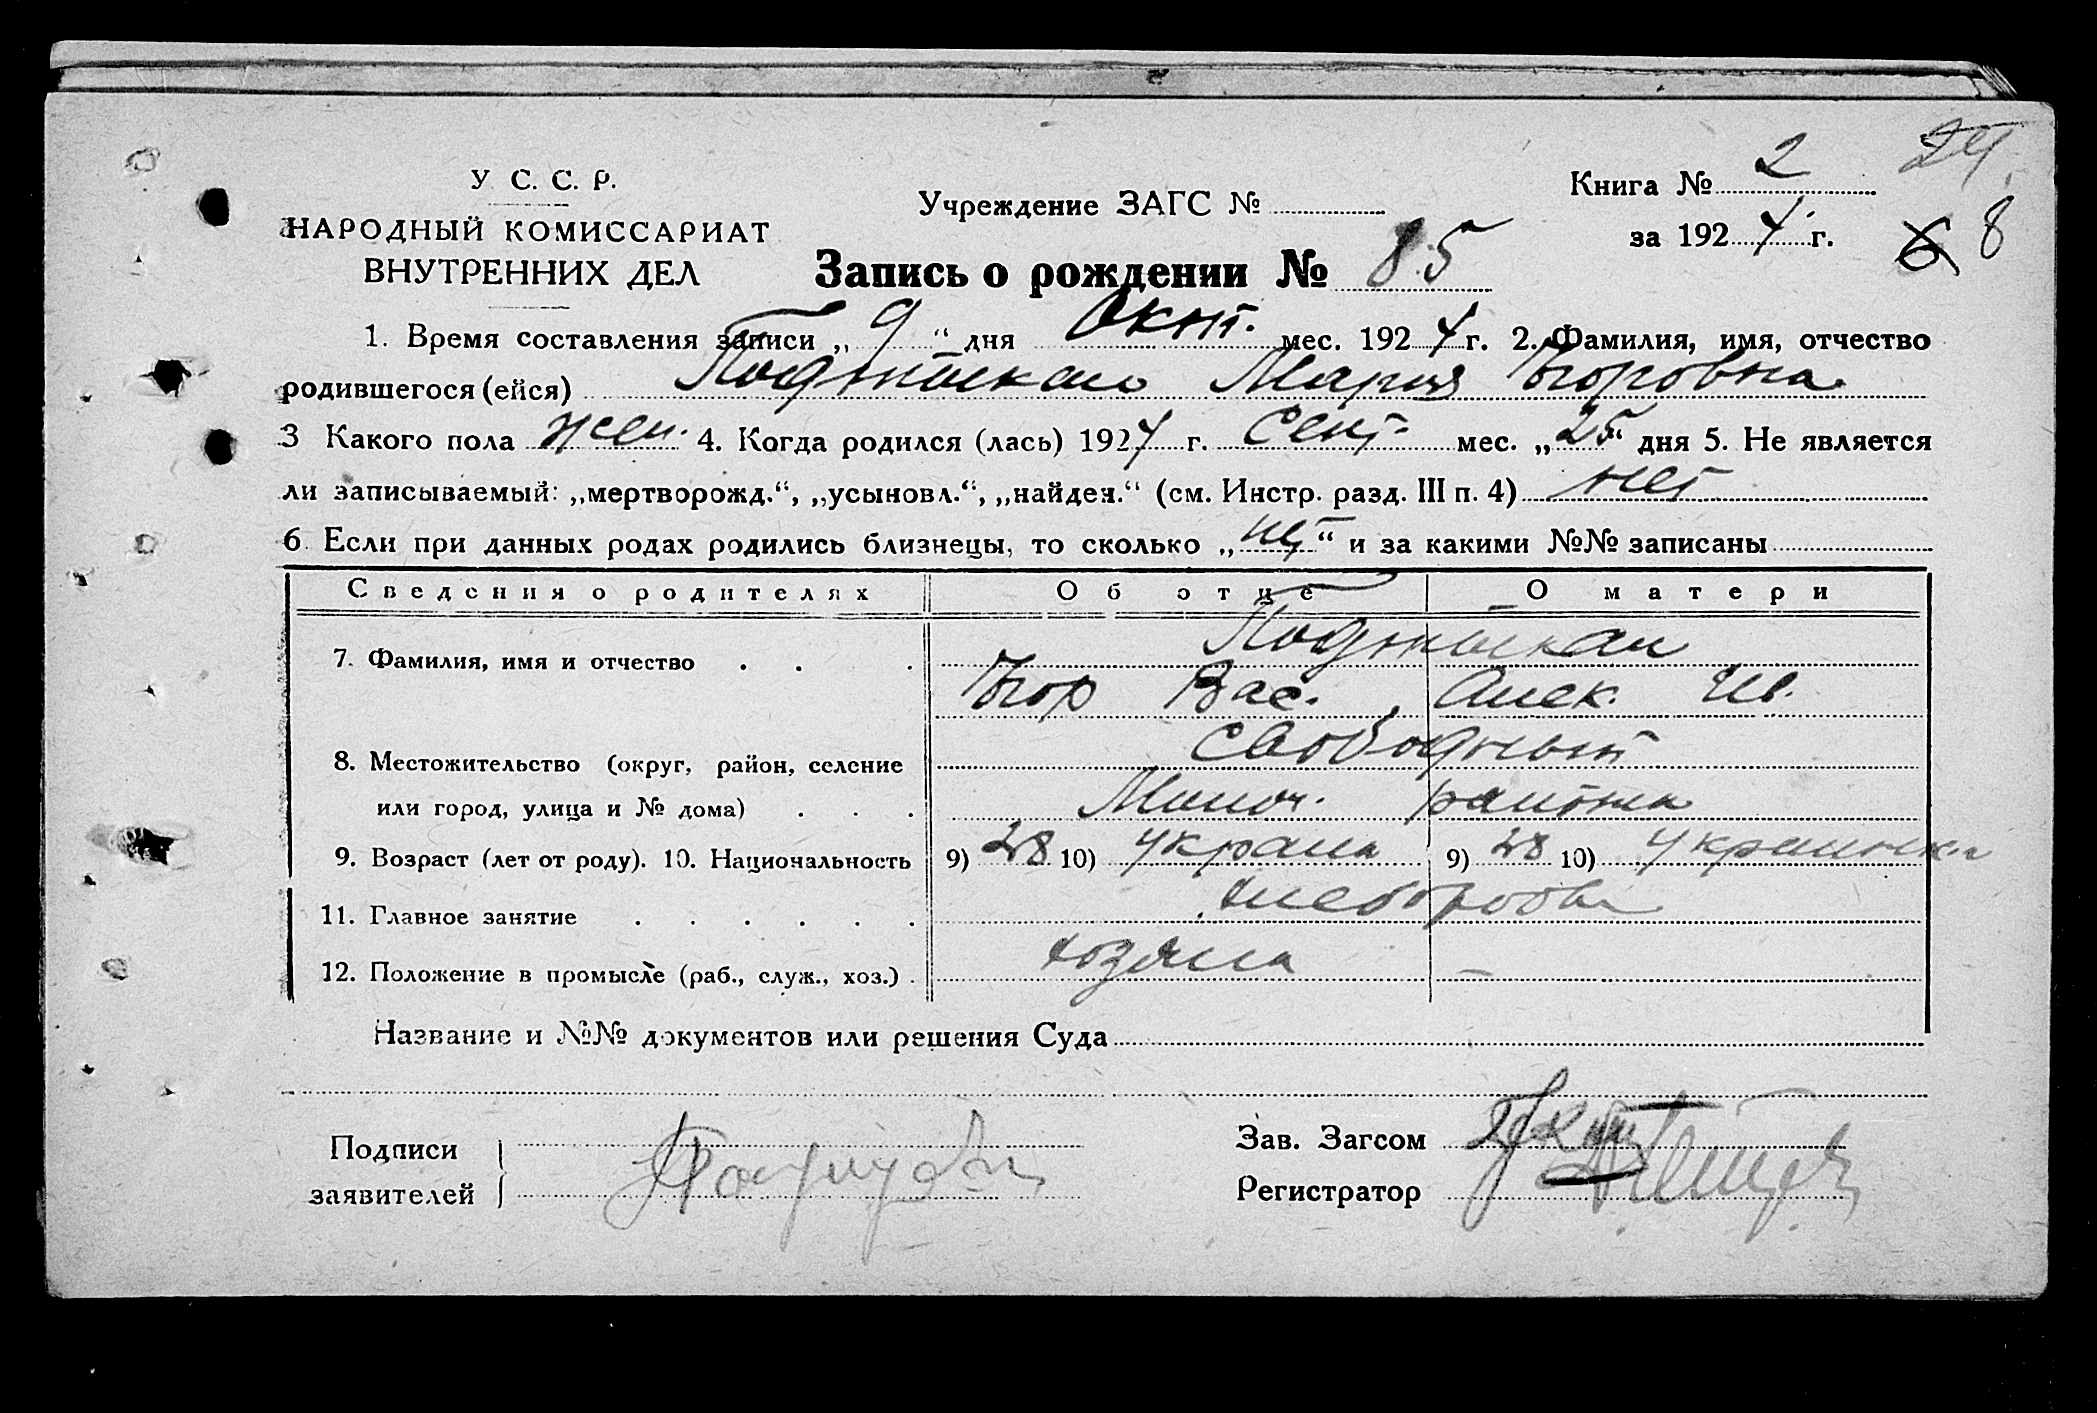 24.
У С. С. Р.
НАРОДНЫЙ КОМИССАРИАТ
ВНУТРЕННИХ ДЕЛ
Учреждение ЗАГС №
Книга № 2
за 1924 г.
6 8
Запись о рождении № 85
1. Время составления записи „9“ дня Окт. мес. 1924 г. 2. Фамилия, имя, отчество
родившегося (ейся) Мария Егоровна
3 Какого пола жен. 4. Когда родился (лась) 1924 г. Сент. мес. „25“ дня 5. Не является
ли записываемый: „мертворожд.“, „усыновл.“, „найден.“ (см. Инстр. разд. III п. 4) нет
6. Если при данных родах родились близнецы, то сколько „нет“ и за какими №№ записаны
Сведения о родителях Об отце О матери
7. Фамилия, имя и отчество
Егор Вас. Алек. Ив.
Свободный
8. Местожительство (округ, район, селение
или город, улица и № дома) района
9. Возраст (лет от роду). 10. Национальность 9) 28 10) 9) 28 10)
11. Главное занятие хлебороб
12. Положение в промысле (раб., служ., хоз.) хозяин —
Название и №№ документов или решения Суда
Подписи
заявителей
Зав. Загсом
Регистратор